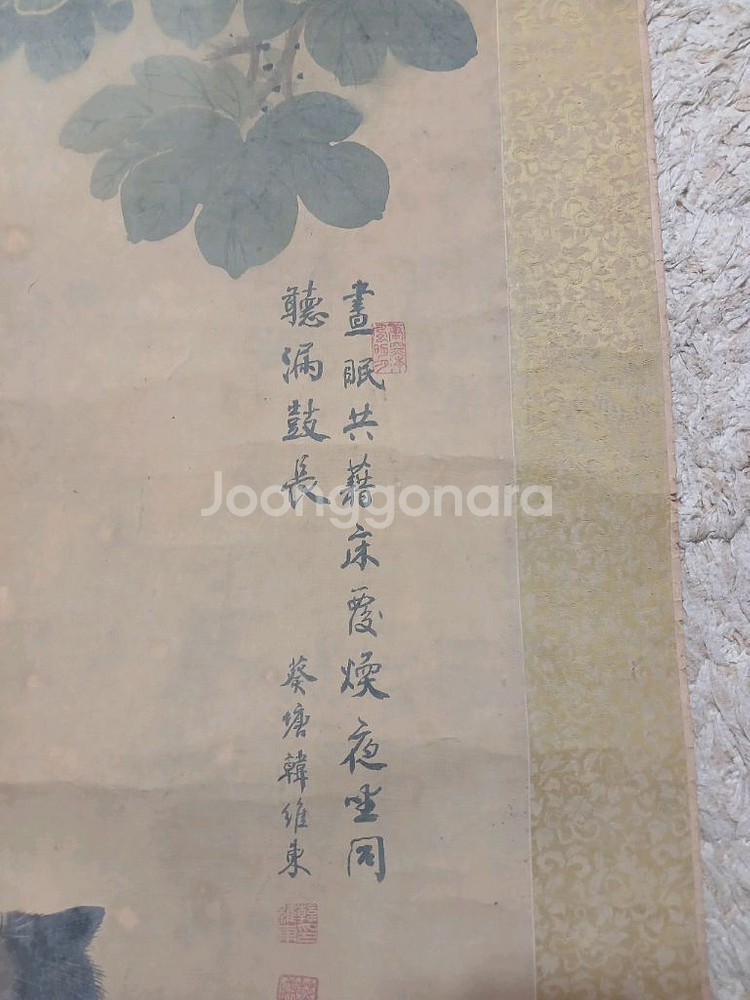 晝眠共藉床敷煗夜坐同
聽漏鼓長
葵塘韓維東
Joonggonara